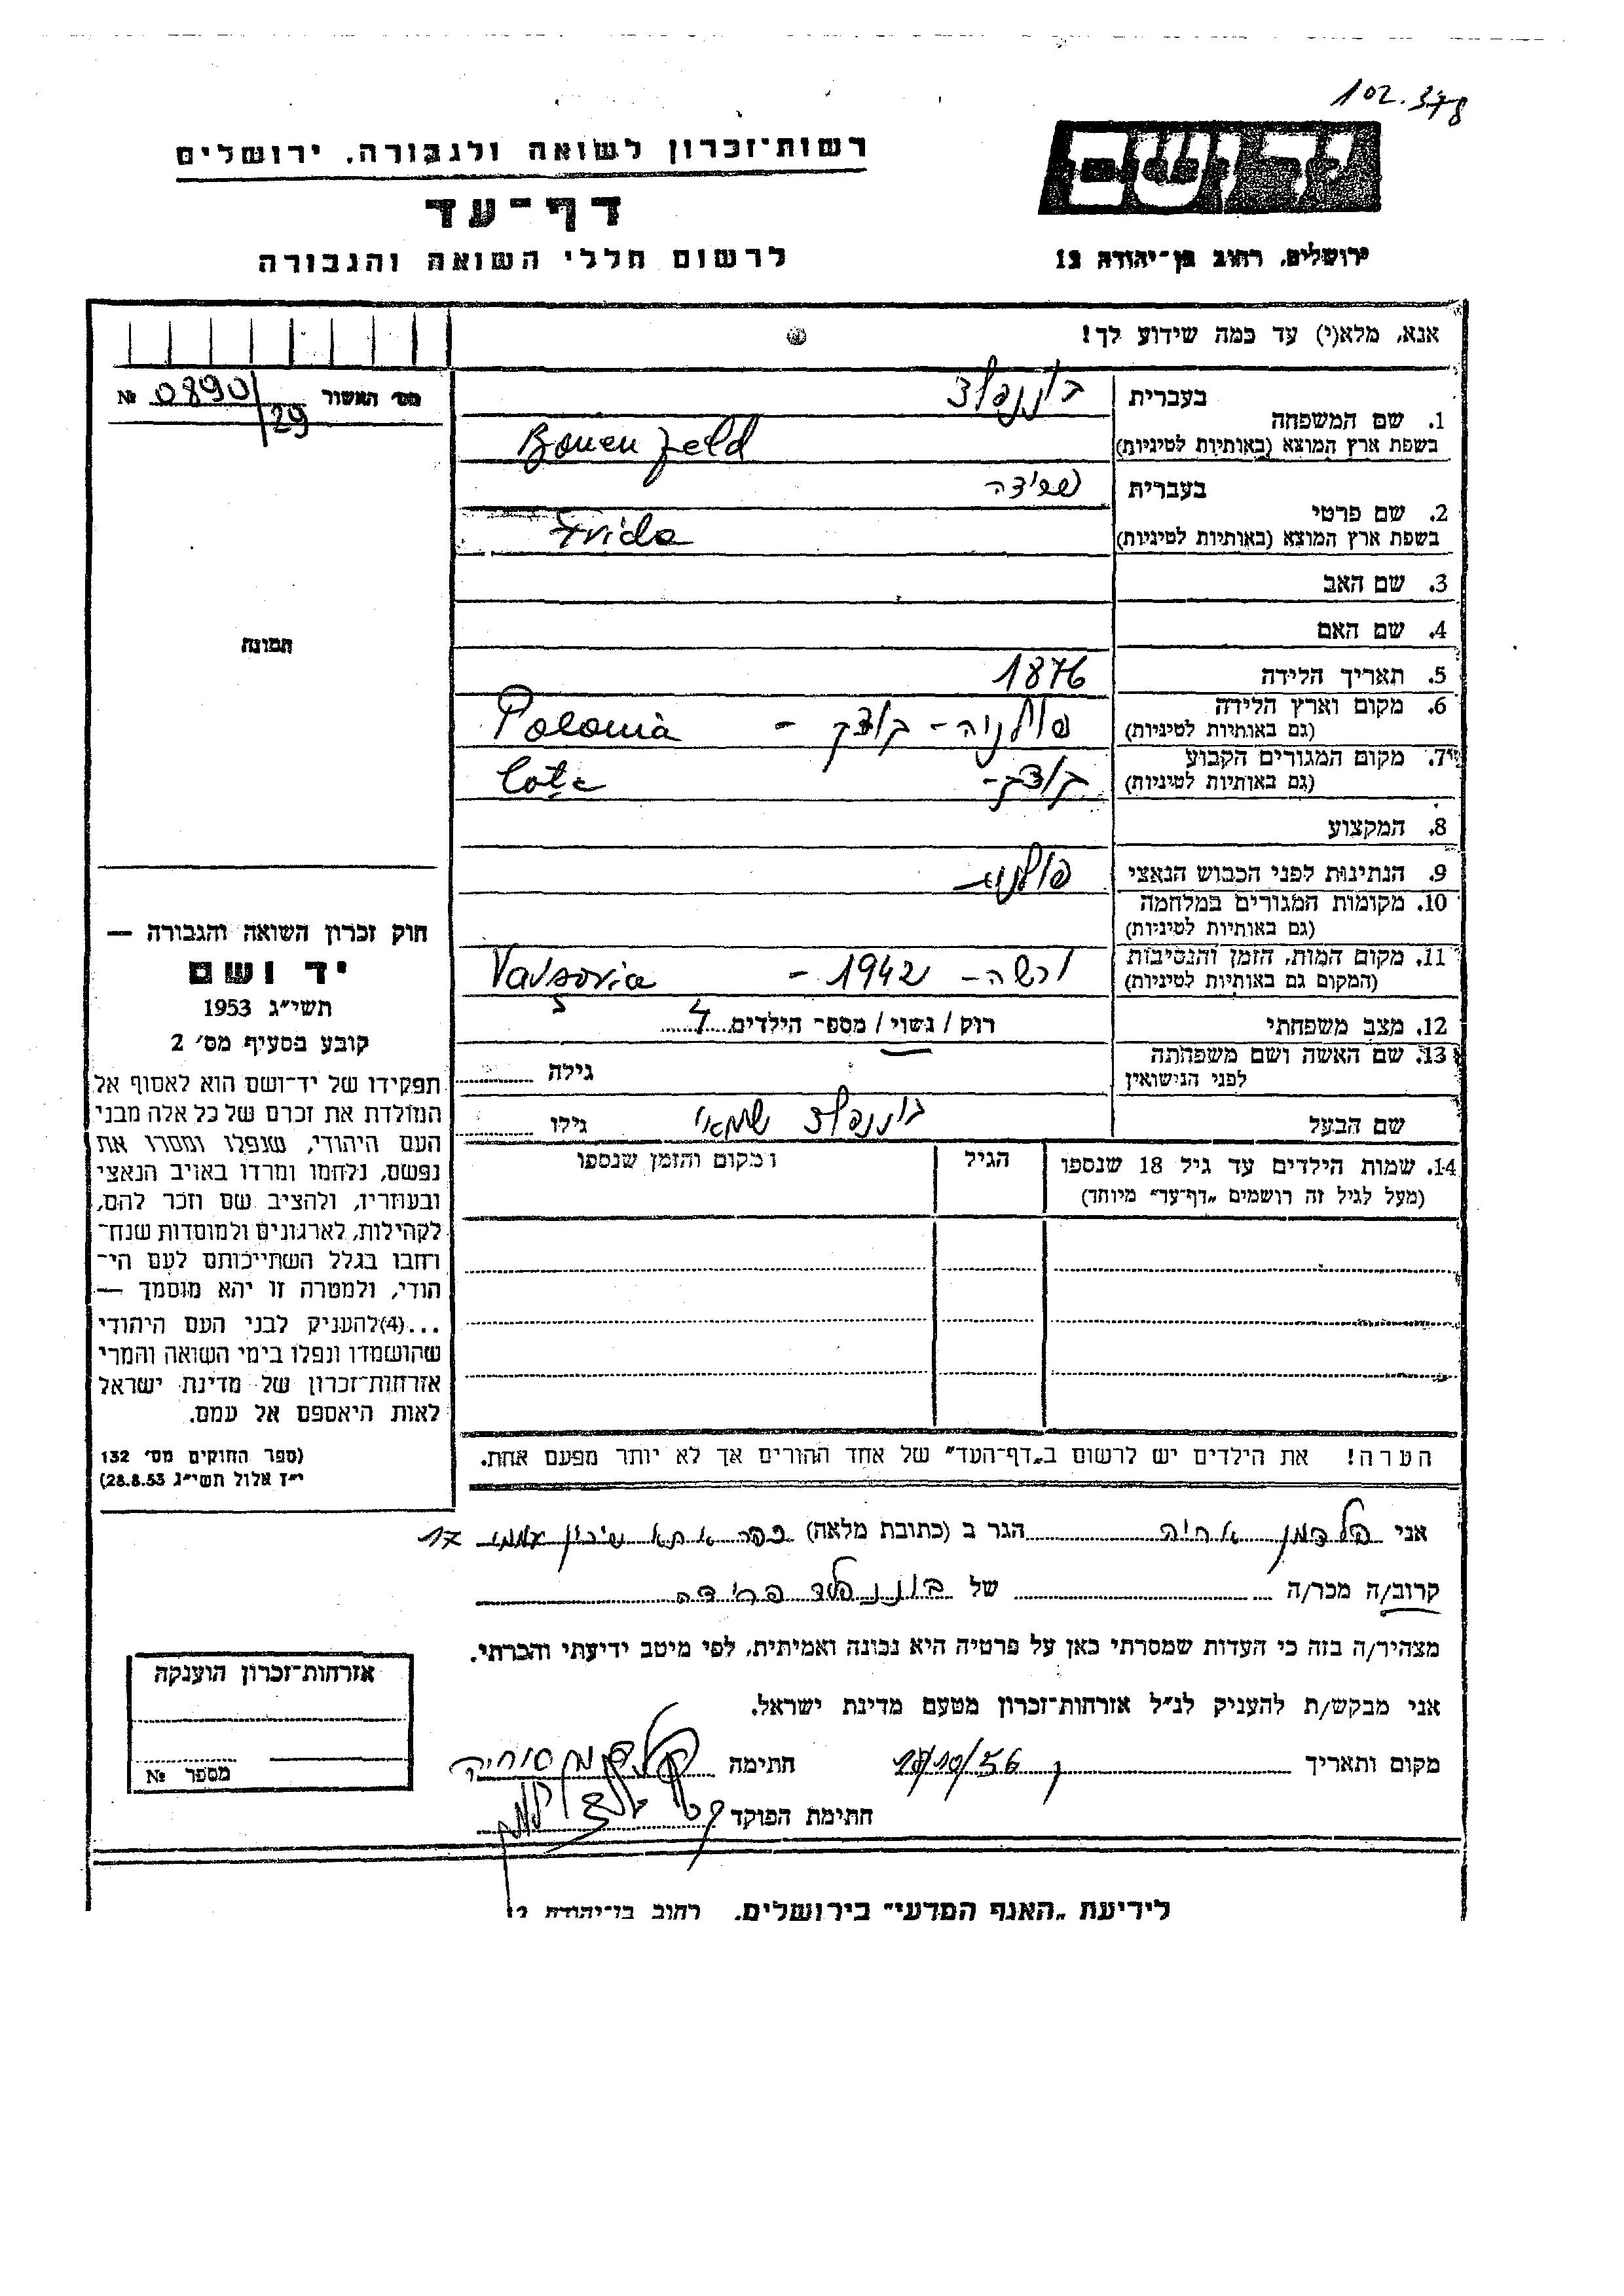 102.378
יד ושם
רשות־זכרון לשואה ולגבורה. ירושלים
דף־עד
ירושלים, רחוב בן־יהודה 12
לרשום חללי השואה והגבורה
אנא, מלא(י) עד כמה שידוע לך!
מס׳ האשור № 0890/29
1. שם המשפחה
בעברית בוננפלד
בשפת ארץ המוצא (באותיות לטיניות) Bonenfeld
2. שם פרטי
בעברית פרידה
בשפת ארץ המוצא (באותיות לטיניות) Frida
3. שם האב
4. שם האם
תמונה
5. תאריך הלידה 1876
6. מקום וארץ הלידה
(גם באותיות לטיניות) פולניה - - Polonia
7. מקום המגורים הקבוע
(גם באותיות לטיניות)
8. המקצוע
9. הנתינות לפני הכבוש הנאצי פולנית
10. מקומות המגורים במלחמה
(גם באותיות לטיניות)
11. מקום המות, הזמן והנסיבות
(המקום גם באותיות לטיניות) ורשה - 1942 - Varsovia
12. מצב משפחתי רוק / נשוי / מספר הילדים 4
13. שם האשה ושם משפחתה
לפני הנישואין גילה
שם הבעל בוננפלד שמאי גילו
14. שמות הילדים עד גיל 18 שנספו הגיל ומקום והזמן שנספו
(מעל לגיל זה רושמים „דף־עד״ מיוחד)
הערה! את הילדים יש לרשום ב„דף־העד״ של אחד ההורים אך לא יותר מפעם אחת.
חוק זכרון השואה והגבורה —
יד ושם
תשי״ג 1953
קובע בסעיף מס׳ 2
תפקידו של יד־ושם הוא לאסוף אל
המולדת את זכרם של כל אלה מבני
העם היהודי, שנפלו ומסרו את
נפשם, נלחמו ומרדו באויב הנאצי
ובעוזריו, ולהציב שם וזכר להם,
לקהילות, לארגונים ולמוסדות שנח־
רבו בגלל השתייכותם לעם הי־
הודי, ולמטרה זו יהא מוסמך —
...(4)להעניק לבני העם היהודי
שהושמדו ונפלו בימי השואה והמרי
אזרחות־זכרון של מדינת ישראל
לאות היאספם אל עמם.
(ספר החוקים מס׳ 132
י״ז אלול תשי״ג 28.8.53)
אני פלדמן הגר ב (כתובת מלאה) 17
קרוב/ה מכר/ה של בוננפלד פרידה
מצהיר/ה בזה כי העדות שמסרתי כאן על פרטיה היא נכונה ואמיתית, לפי מיטב ידיעתי והכרתי.
אני מבקש/ת להעניק לנ״ל אזרחות־זכרון מטעם מדינת ישראל.
מקום ותאריך 18/10/56 חתימה
חתימת הפוקד
אזרחות־זכרון הוענקה
מספר №
לידיעת „האגף המדעי״ בירושלים. רחוב בן־יהודה 12